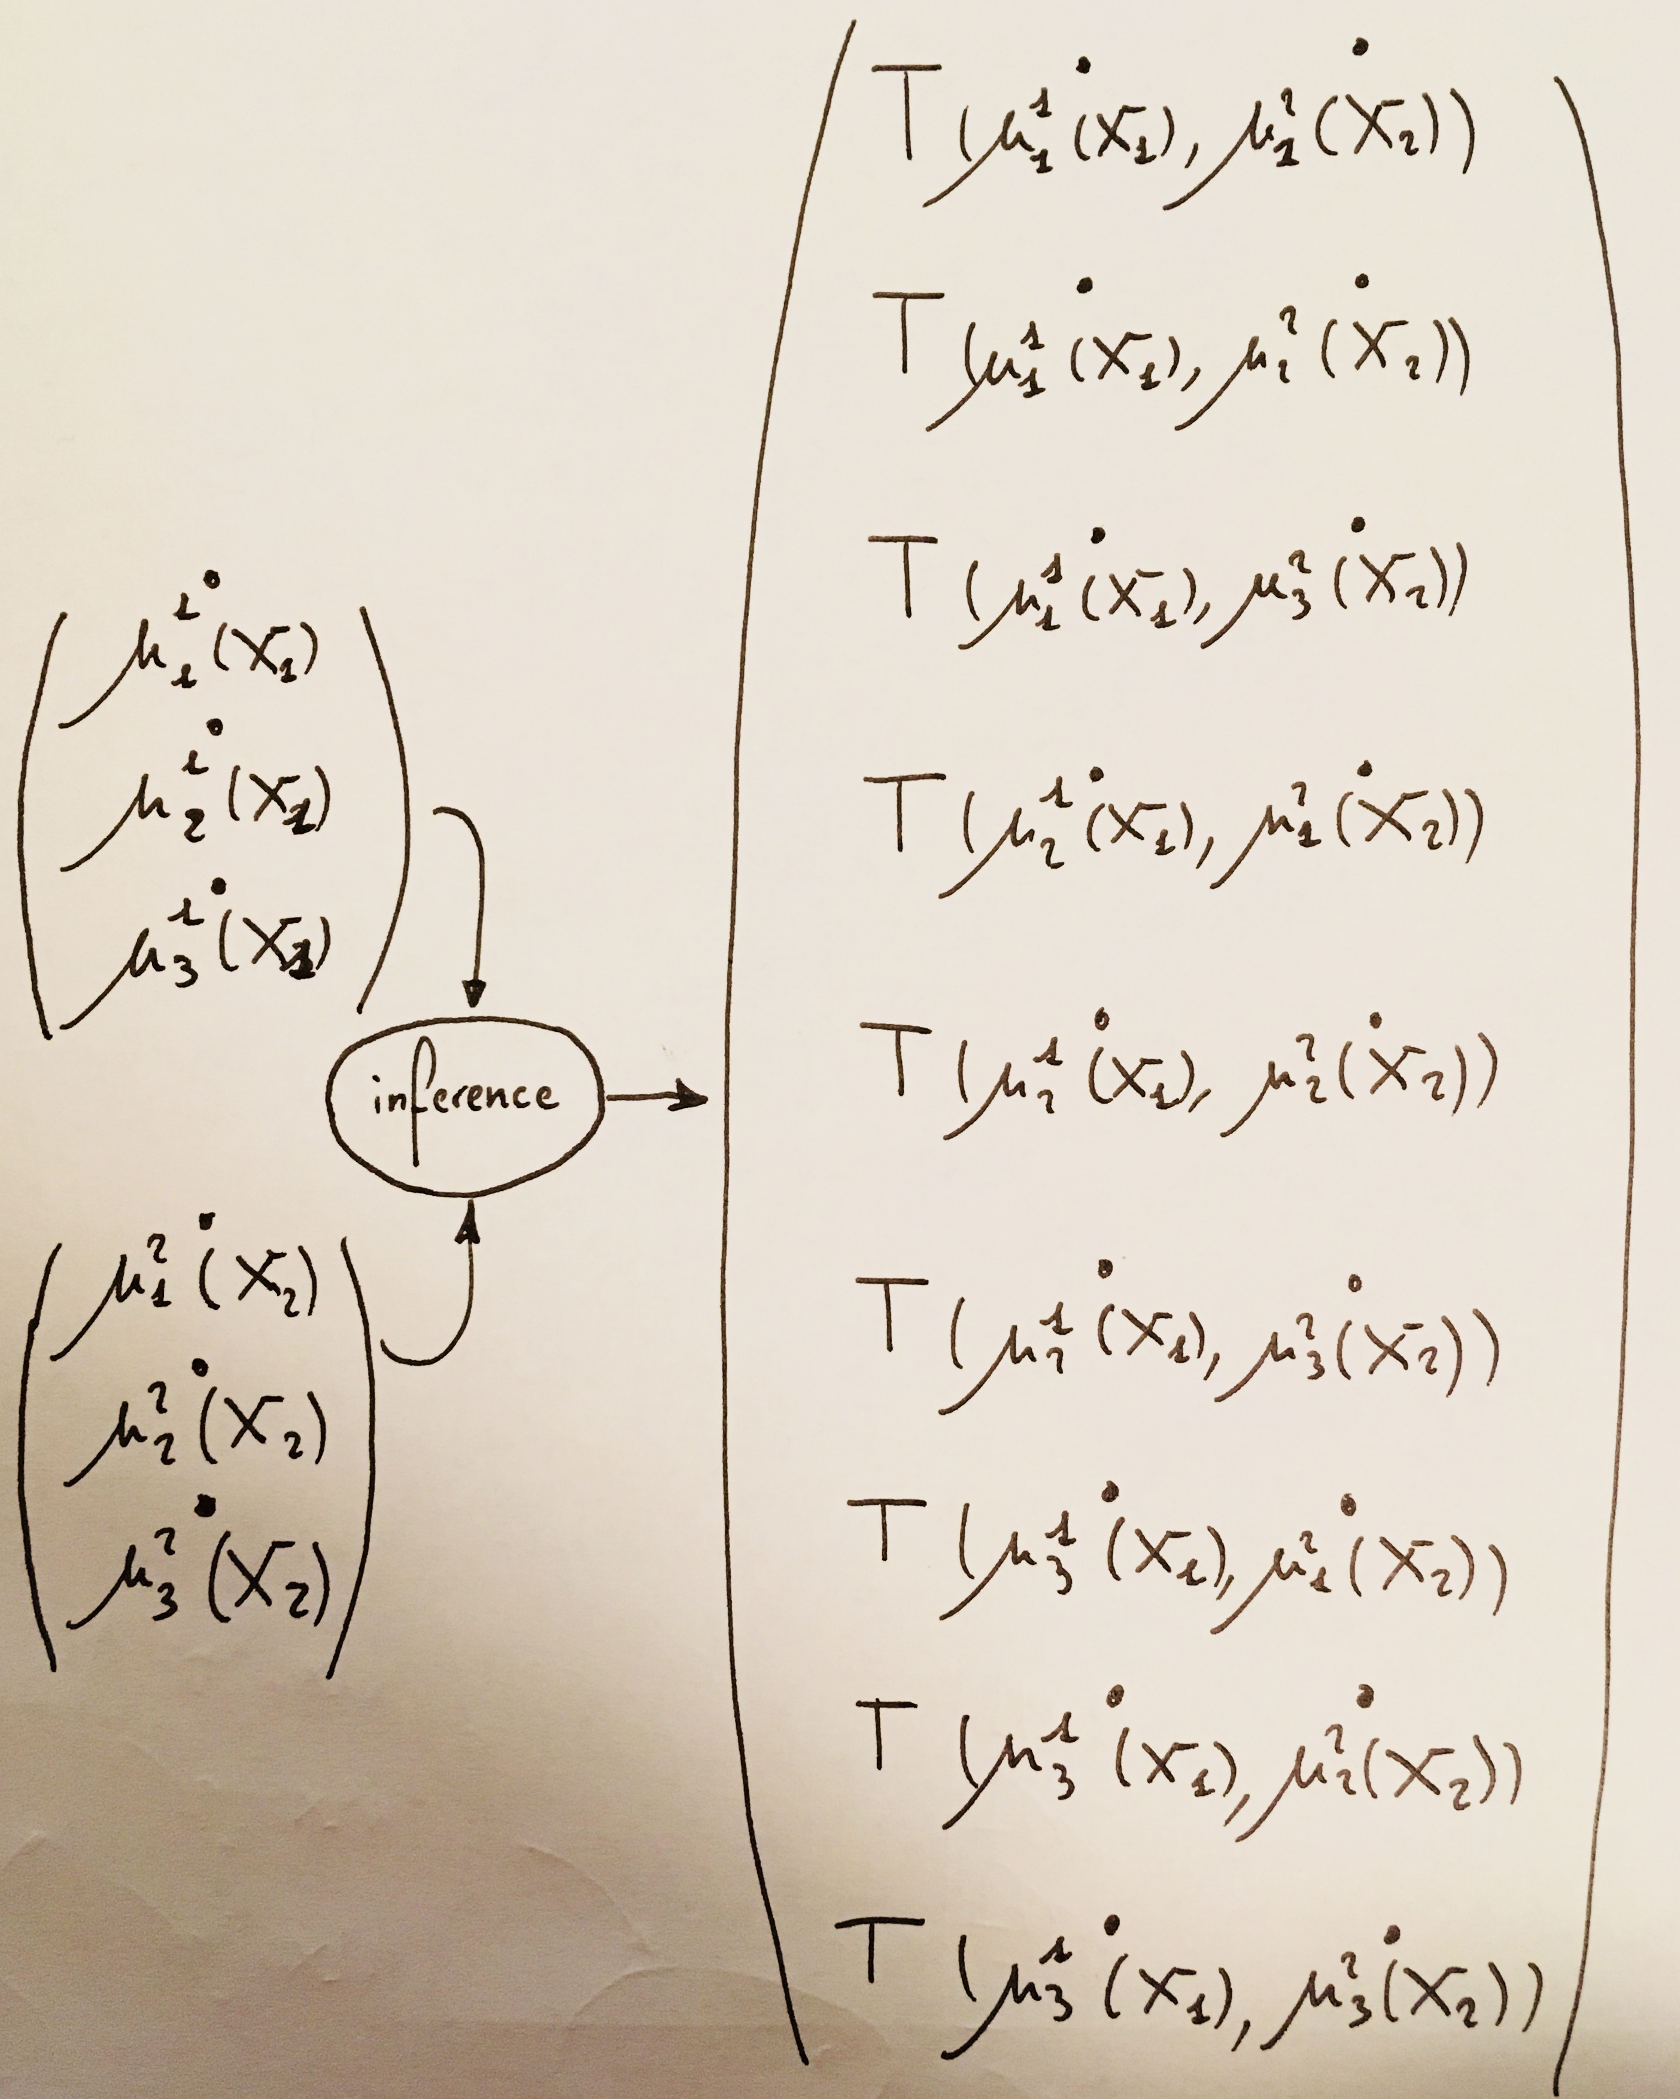 μ₁¹˙(X₁)
μ₂¹˙(X₁)
μ₃¹˙(X₁)
inference
μ₁²˙(X₂)
μ₂²˙(X₂)
μ₃²˙(X₂)
T(μ₁¹˙(X₁), μ₁²˙(X₂))
T(μ₁¹˙(X₁), μ₂²˙(X₂))
T(μ₁¹˙(X₁), μ₃²˙(X₂))
T(μ₂¹˙(X₁), μ₁²˙(X₂))
T(μ₂¹˙(X₁), μ₂²˙(X₂))
T(μ₂¹˙(X₁), μ₃²˙(X₂))
T(μ₃¹˙(X₁), μ₁²˙(X₂))
T(μ₃¹˙(X₁), μ₂²˙(X₂))
T(μ₃¹˙(X₁), μ₃²˙(X₂))